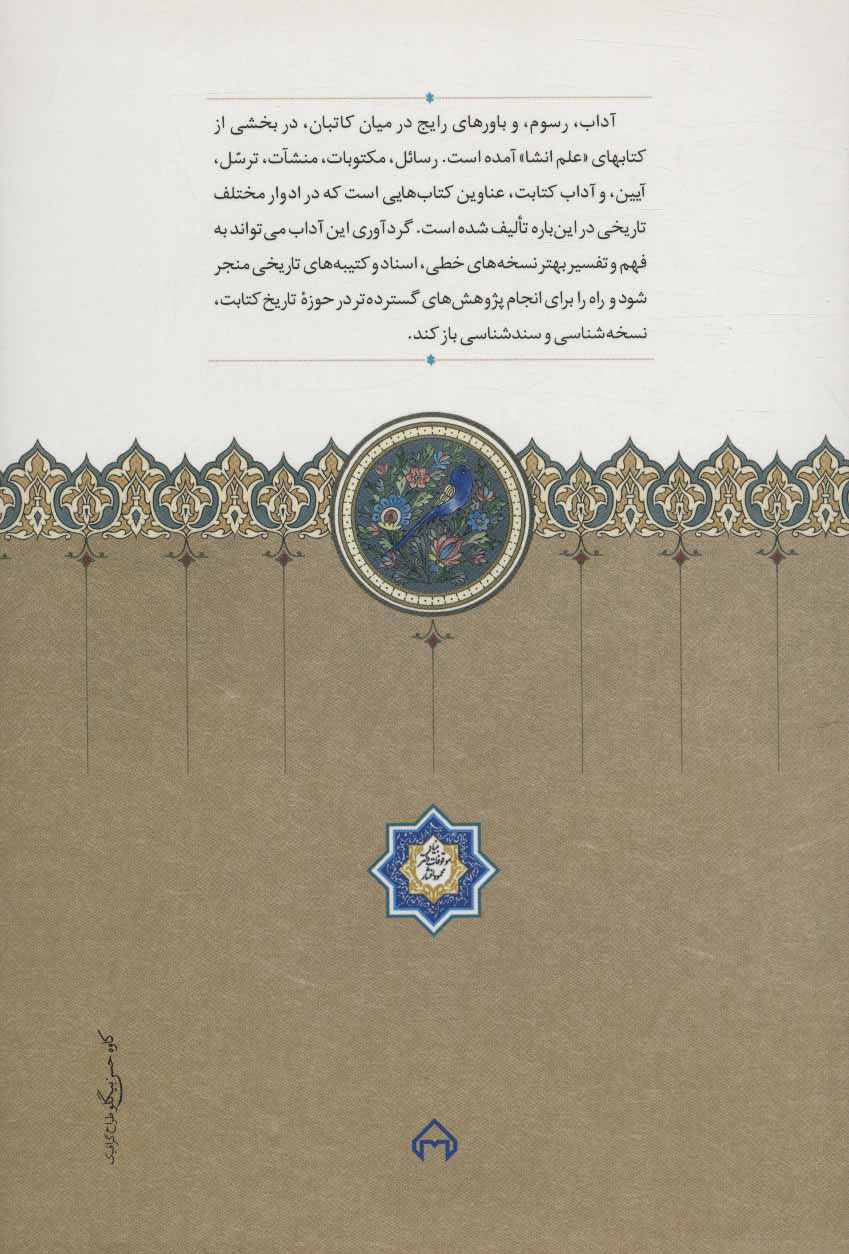 آداب، رسوم، و باورهای رایج در میان کاتبان، در بخشی از
کتابهای «علم انشا» آمده است. رسائل، مکتوبات، منشآت، ترسّل،
آیین، و آداب کتابت، عناوین کتاب‌هایی است که در ادوار مختلف
تاریخی در این‌باره تألیف شده است. گردآوری این آداب می‌تواند به
فهم و تفسیر بهتر نسخه‌های خطی، اسناد و کتیبه‌های تاریخی منجر
شود و راه را برای انجام پژوهش‌های گسترده‌تر در حوزهٔ تاریخ کتابت،
نسخه‌شناسی و سندشناسی باز کند.
بنیاد
موقوفات دکتر
محمود افشار
کاوه حسن بیگلو طراح گرافیک